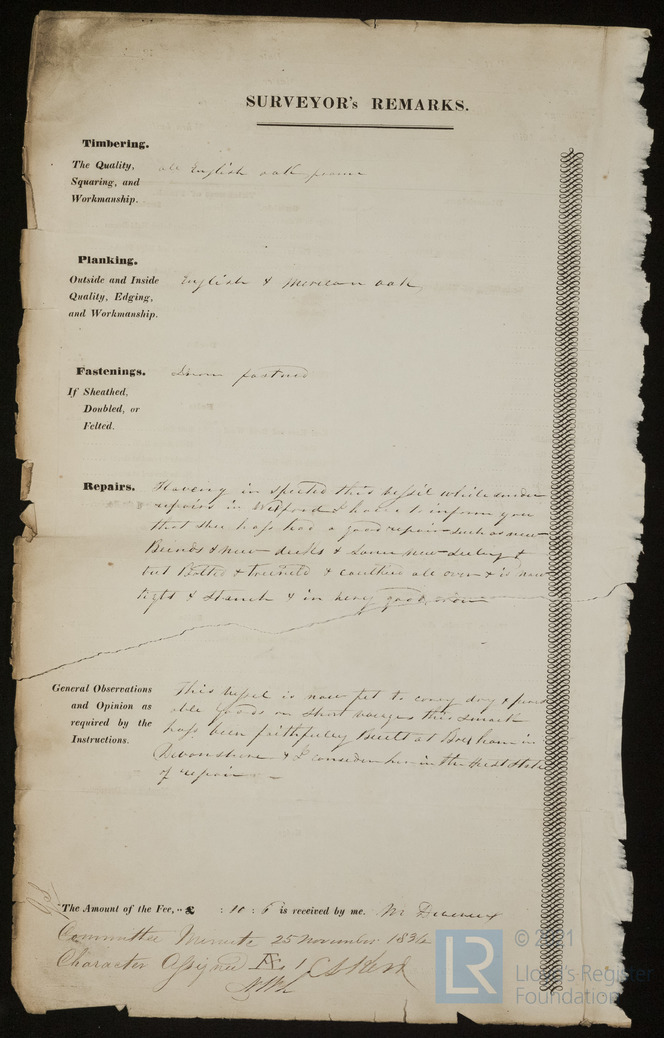 SURVEYOR's REMARKS.
Timbering.
The Quality,
Squaring, and
Workmanship.
all English oak
Planking.
Outside and Inside
Quality, Edging,
and Workmanship.
English & merican oak
Fastenings.
If Sheathed,
Doubled, or
Felted.
Iron fastned
Repairs.
Having in spected this vessil while under
repairs in Wexford I have to inform you
that shee hass had a good repair such as new
& new decks & new &
Bolted & & caulked all over & is now
tight & stanch & in very good
General Observations
and Opinion as
required by the
Instructions.
This vessel is now fit to carry dry &
able goods on short voiages this smack
hass been faithfuley Built at Brixham in
Devonshire & I consider her in the state
of repair
The Amount of the Fee, £ : 10 : 6 is received by me,
Committee Minute 25 November 1834
Character Assigned Æ 1
LR
© 2021
Lloyd's Register
Foundation